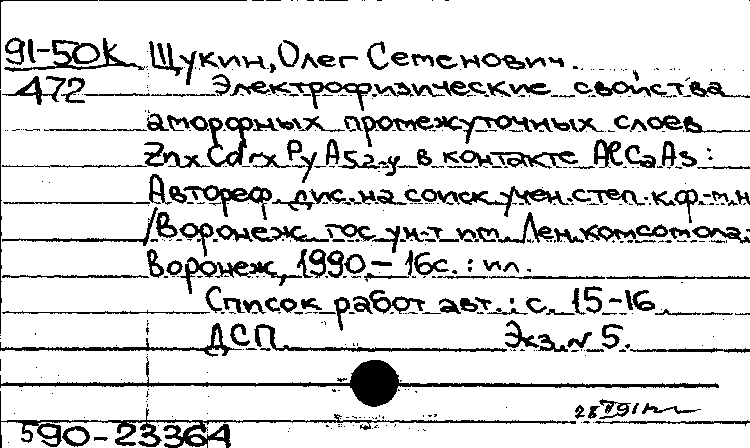 91-50к Щукин, Олег Семенович.
472 Электрофизические свойства
аморфных промежуточных слоев
ZnxCd1-xPyAs2-y в контакте Al C2As :
Автореф. дис. на соиск. учен. степ. к.ф.-м.н
/Воронеж. гос. ун-т им. Лен. комсомола.
Воронеж, 1990.- 16с. : ил.
Список работ авт.: с. 15-16.
ДСП. Экз. N 5.
590-23364